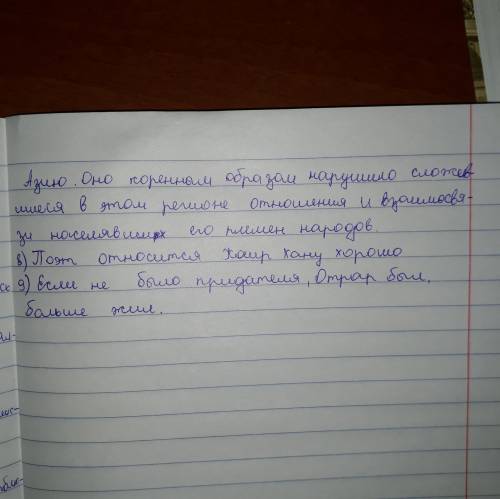 Азию. Оно коренным образом нарушило сложев
шиеся в этом регионе отношения и взаимосвя-
зи населявших его племен народов.
8) Поэт относится Каир хану хорошо
9) Если не было придателя, Отрар был,
больше жил.